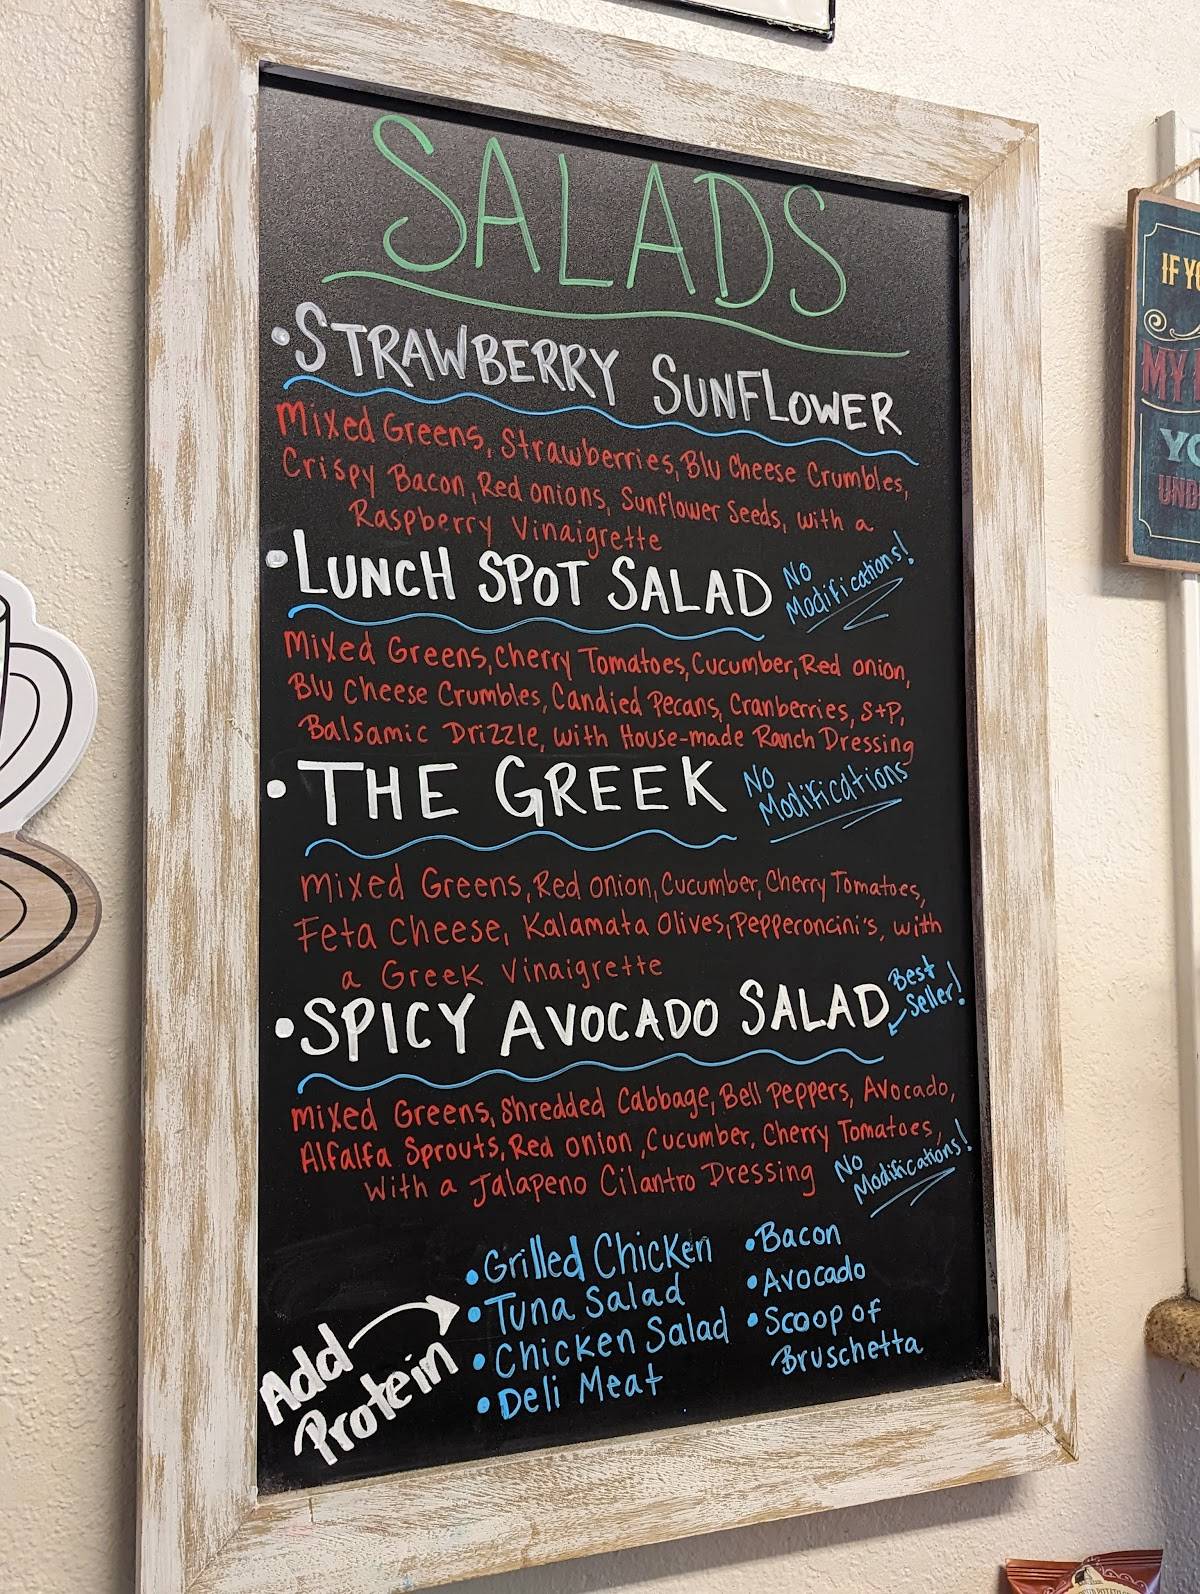 SALADS
• STRAWBERRY SUNFLOWER
Mixed Greens, Strawberries, Blu Cheese Crumbles,
Crispy Bacon, Red onions, Sunflower Seeds, with a
Raspberry Vinaigrette
• LUNCH SPOT SALAD
No
Modifications!
Mixed Greens, Cherry Tomatoes, Cucumber, Red onion,
Blu Cheese Crumbles, Candied Pecans, Cranberries, S+P,
Balsamic Drizzle, with House-made Ranch Dressing
• THE GREEK
No
Modifications
Mixed Greens, Red onion, Cucumber, Cherry Tomatoes,
Feta Cheese, Kalamata Olives, Pepperoncini's, with
a Greek Vinaigrette
• SPICY AVOCADO SALAD
Best
Seller!
Mixed Greens, Shredded Cabbage, Bell Peppers, Avocado,
Alfalfa Sprouts, Red onion, Cucumber, Cherry Tomatoes,
with a Jalapeno Cilantro Dressing
No
Modifications!
Add
Protein
• Grilled Chicken
• Tuna Salad
• Chicken Salad
• Deli Meat
• Bacon
• Avocado
• Scoop of
Bruschetta
IF
MY